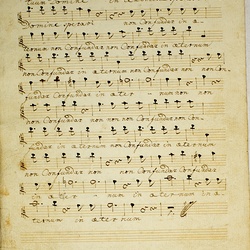 tuum Domine in
Domine speravi non Confundar in a-
ternum non Confundar non Confundar in æternum
non Confundar in æternum non Confundar non Con-
fundar in æter num non non
non Confundar non non Confundar non Con-
fundar in æternum non Confundar in æternum
non Confundar non non Confundar Confundar
in æter num in æternum in æ-
ternum in æternum